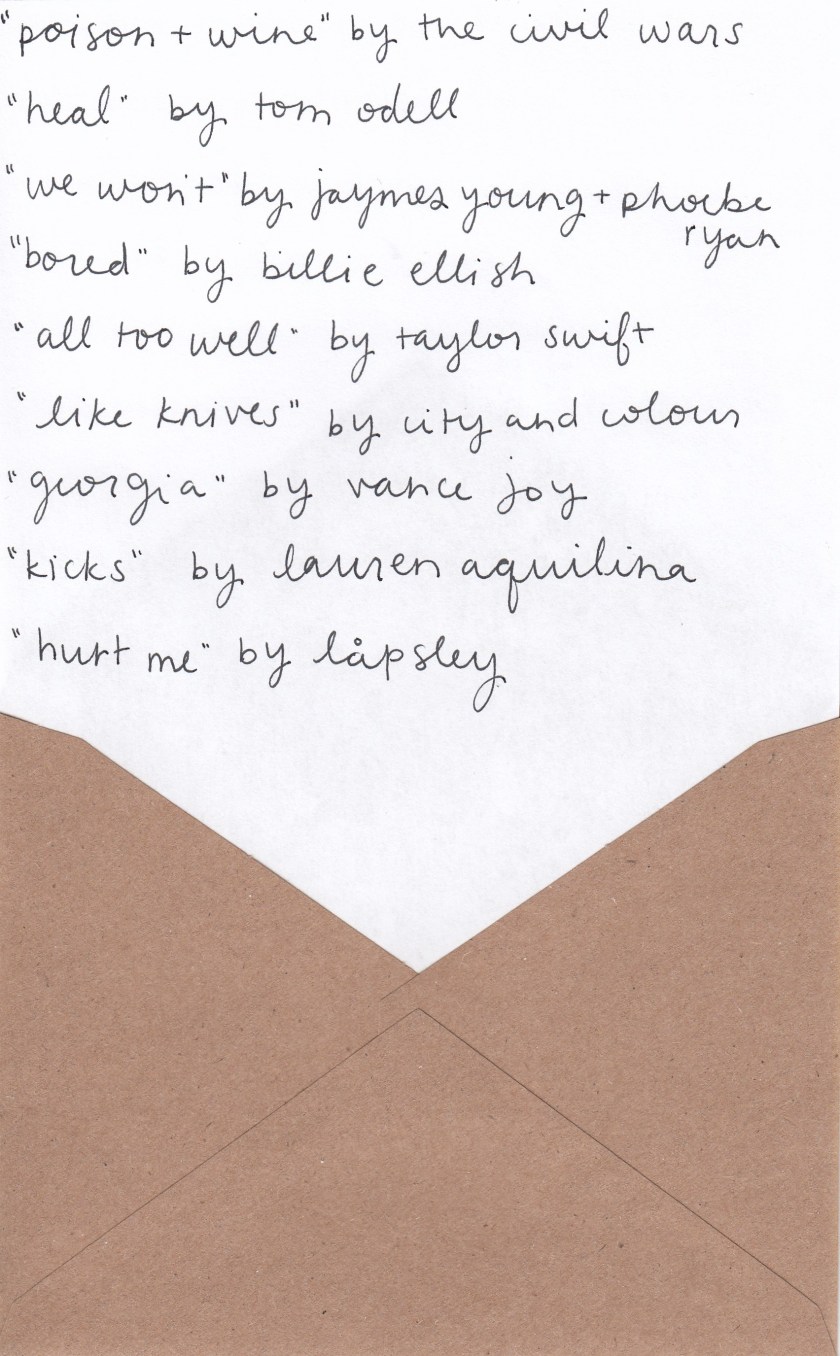 "poison + wine" by the civil wars
"heal" by tom odell
"we won't" by jaymes young + phoebe
ryan
"bored" by billie ellish
"all too well" by taylor swift
"like knives" by city and colour
"georgia" by vance joy
"kicks" by lauren aquilina
"hurt me" by låpsley